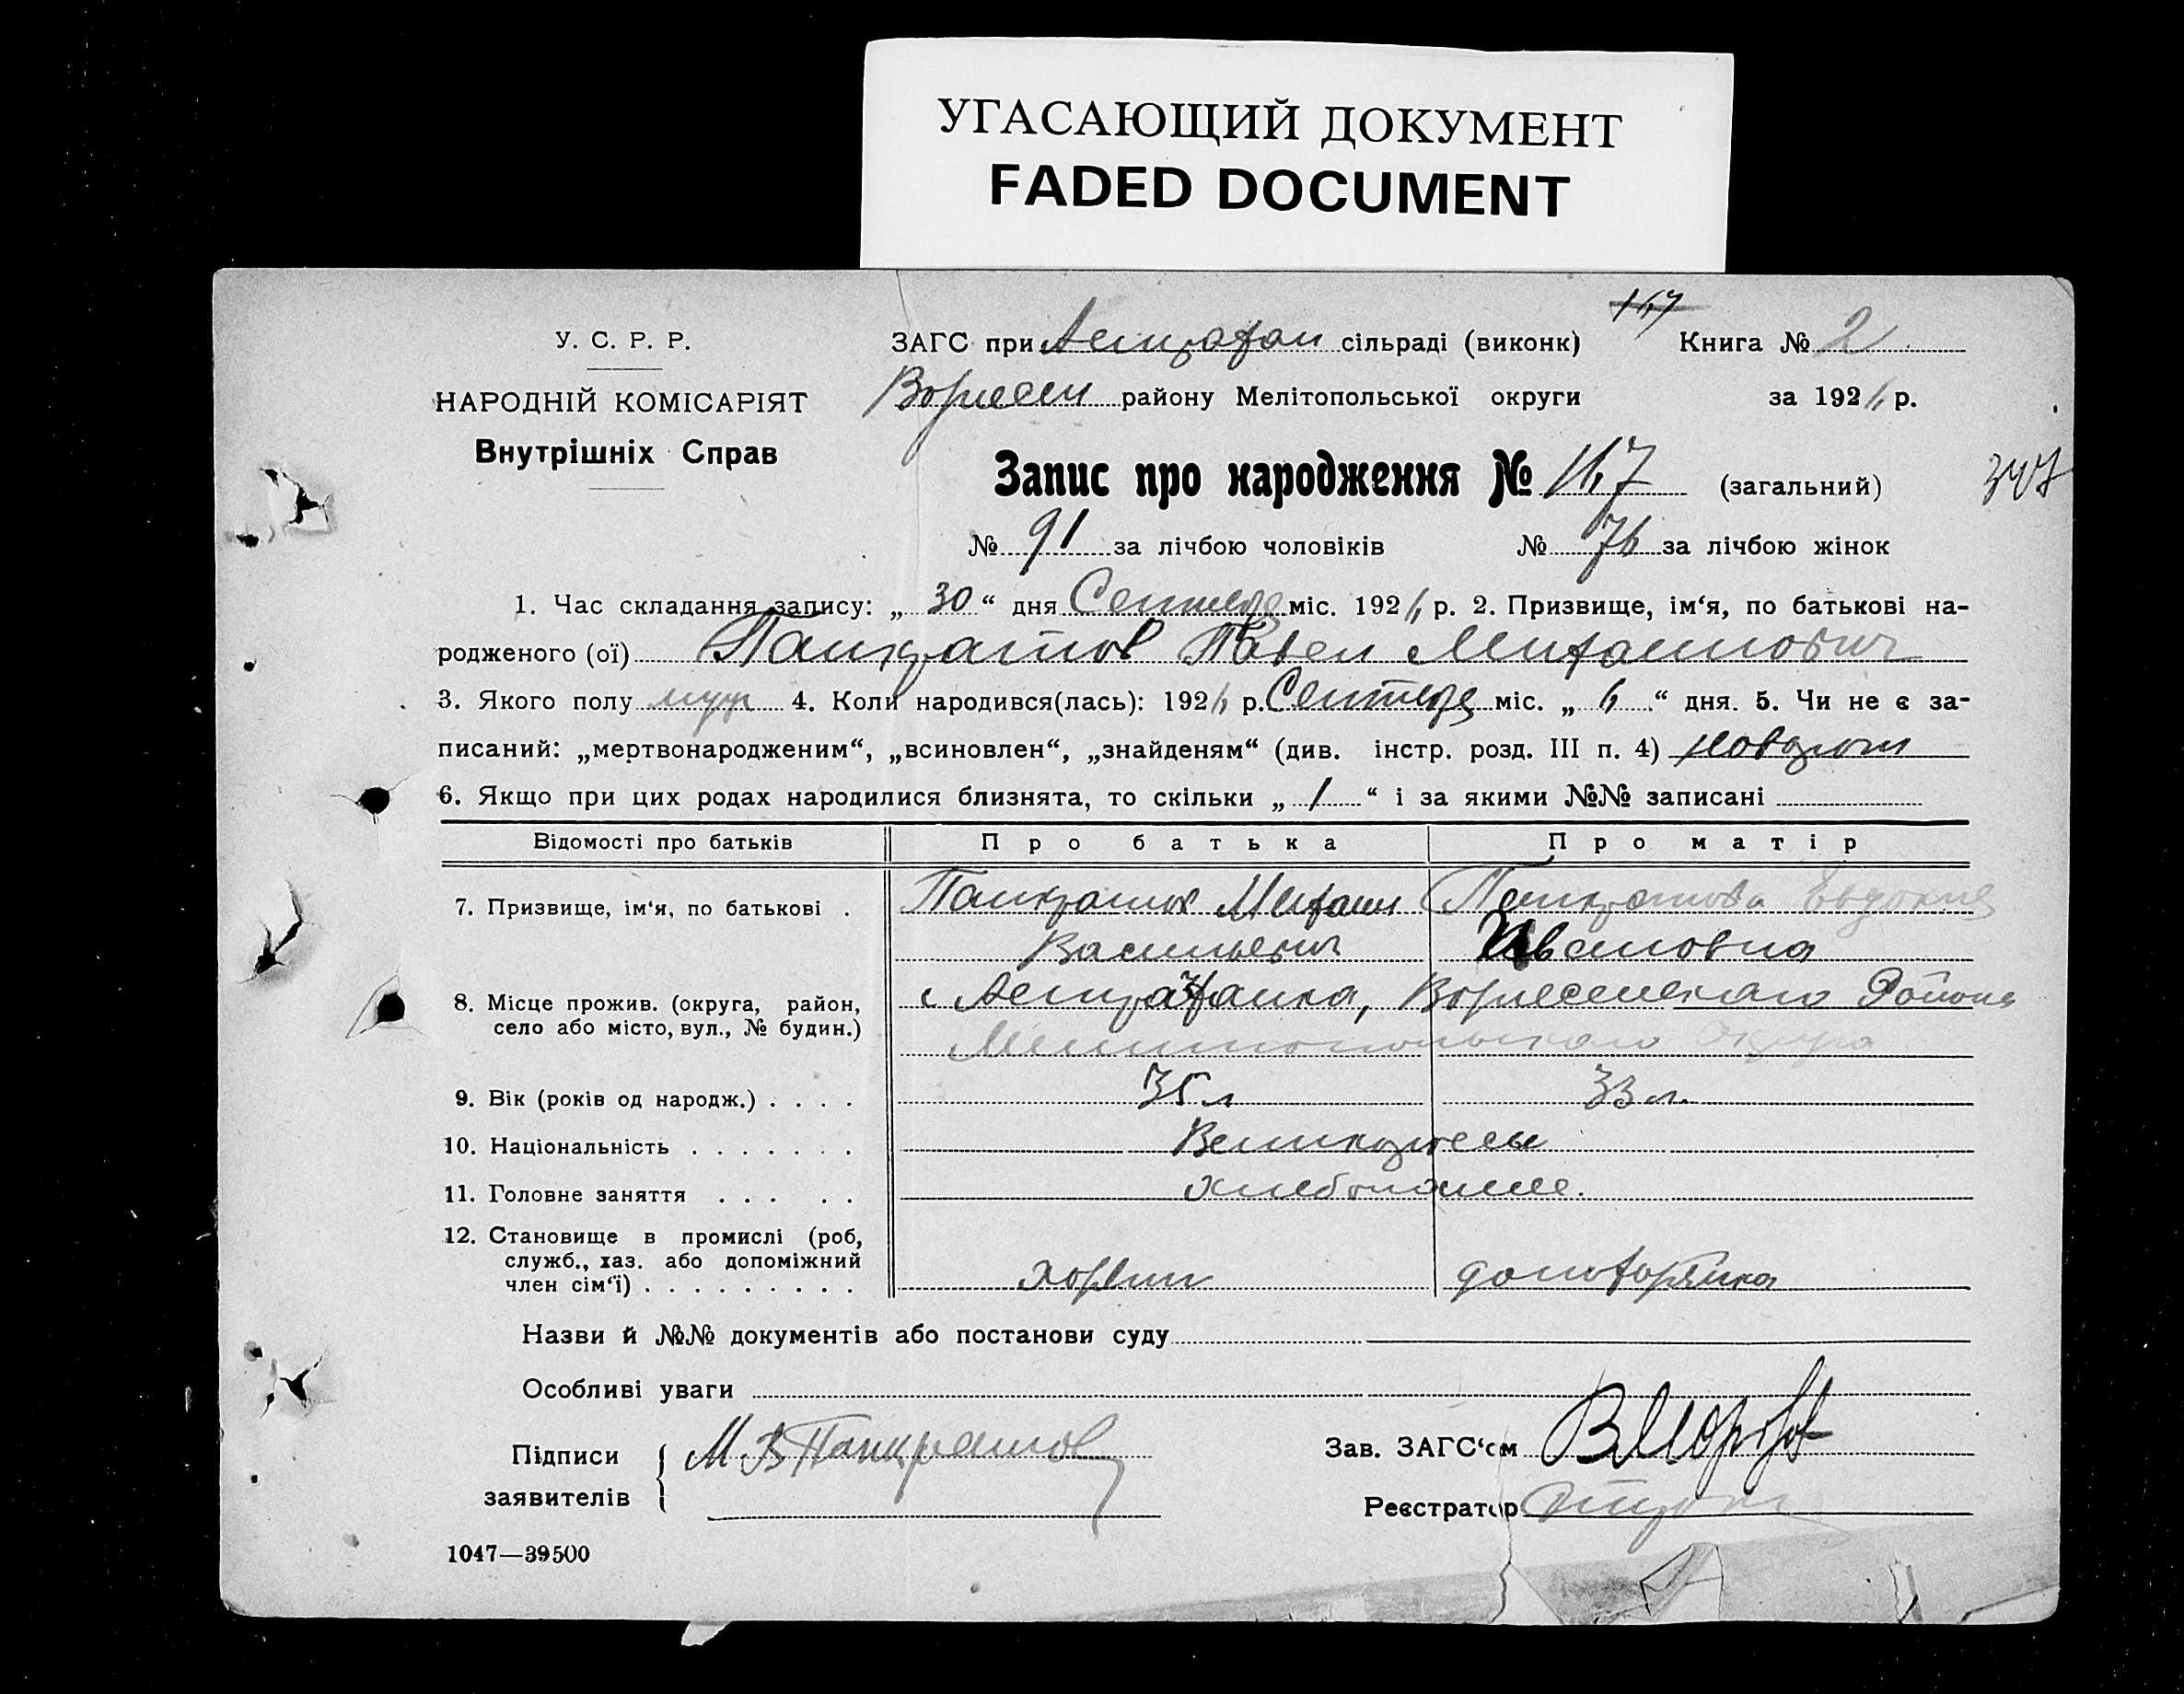 УГАСАЮЩИЙ ДОКУМЕНТ
FADED DOCUMENT
У. С. Р. Р.
НАРОДНІЙ КОМІСАРІЯТ
Внутрішніх Справ
167
ЗАГС при Астрахан сільраді (виконк) Книга № 2
району Мелітопольської округи за 1926 р.
Запис про народження № 167 (загальний)
№ 91 за лічбою чоловіків № 76 за лічбою жінок
1. Час складання запису: „ 30 “ дня Сентября міс. 1926 р. 2. Призвище, ім‘я, по батькові на-
родженого (ої) Панкратов Павел Михайлович
3. Якого полу муж 4. Коли народився(лась): 1926 р. Сентября міс. „ 6 “ дня. 5. Чи не є за-
писаний: „мертвонародженим“, „всиновлен“, „знайденям“ (див. інстр. розд. III п. 4)
6. Якщо при цих родах народилися близнята, то скільки „ / “ і за якими №№ записані
Відомості про батьків Про батька Про матір
7. Призвище, ім‘я, по батькові . Панкратов Михаил Панкратова Евдокия
Васильевич Ивановна
8. Місце прожив. (округа, район, с Астраханка, Района
село або місто, вул., № будин.) Мелитопольского Округа
9. Вік (років од народж.) . . . . 35 л 33 л.
10. Національність . . . . . . . Великороссы
11. Головне заняття . . . . . хлебопаше.
12. Становище в промислі (роб,
служб., хаз. або допоміжний
член сім‘ї) . . . . . . . . . хозяин домохозяйка
Назви й №№ документів або постанови суду
Особливі уваги
Підписи М В Панкратов Зав. ЗАГС‘ом
заявителів Реєстратор
1047—39500